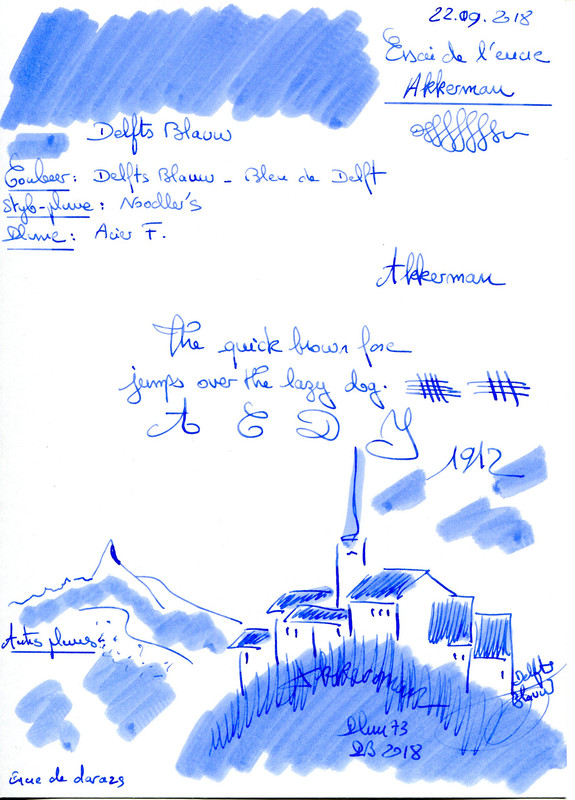 22.09.2018
Essai de l'encre
Akkerman
Delfts Blauw
Couleur: Delfts Blauw - Bleu de Delft
Stylo-plume: Noodler's
Plume: Acier F.
Akkerman
the quick brown fox
jumps over the lazy dog.
A E D Y
1912
Autres plumes
Akkerman
Delfts
Blauw
73
2018
Encre de